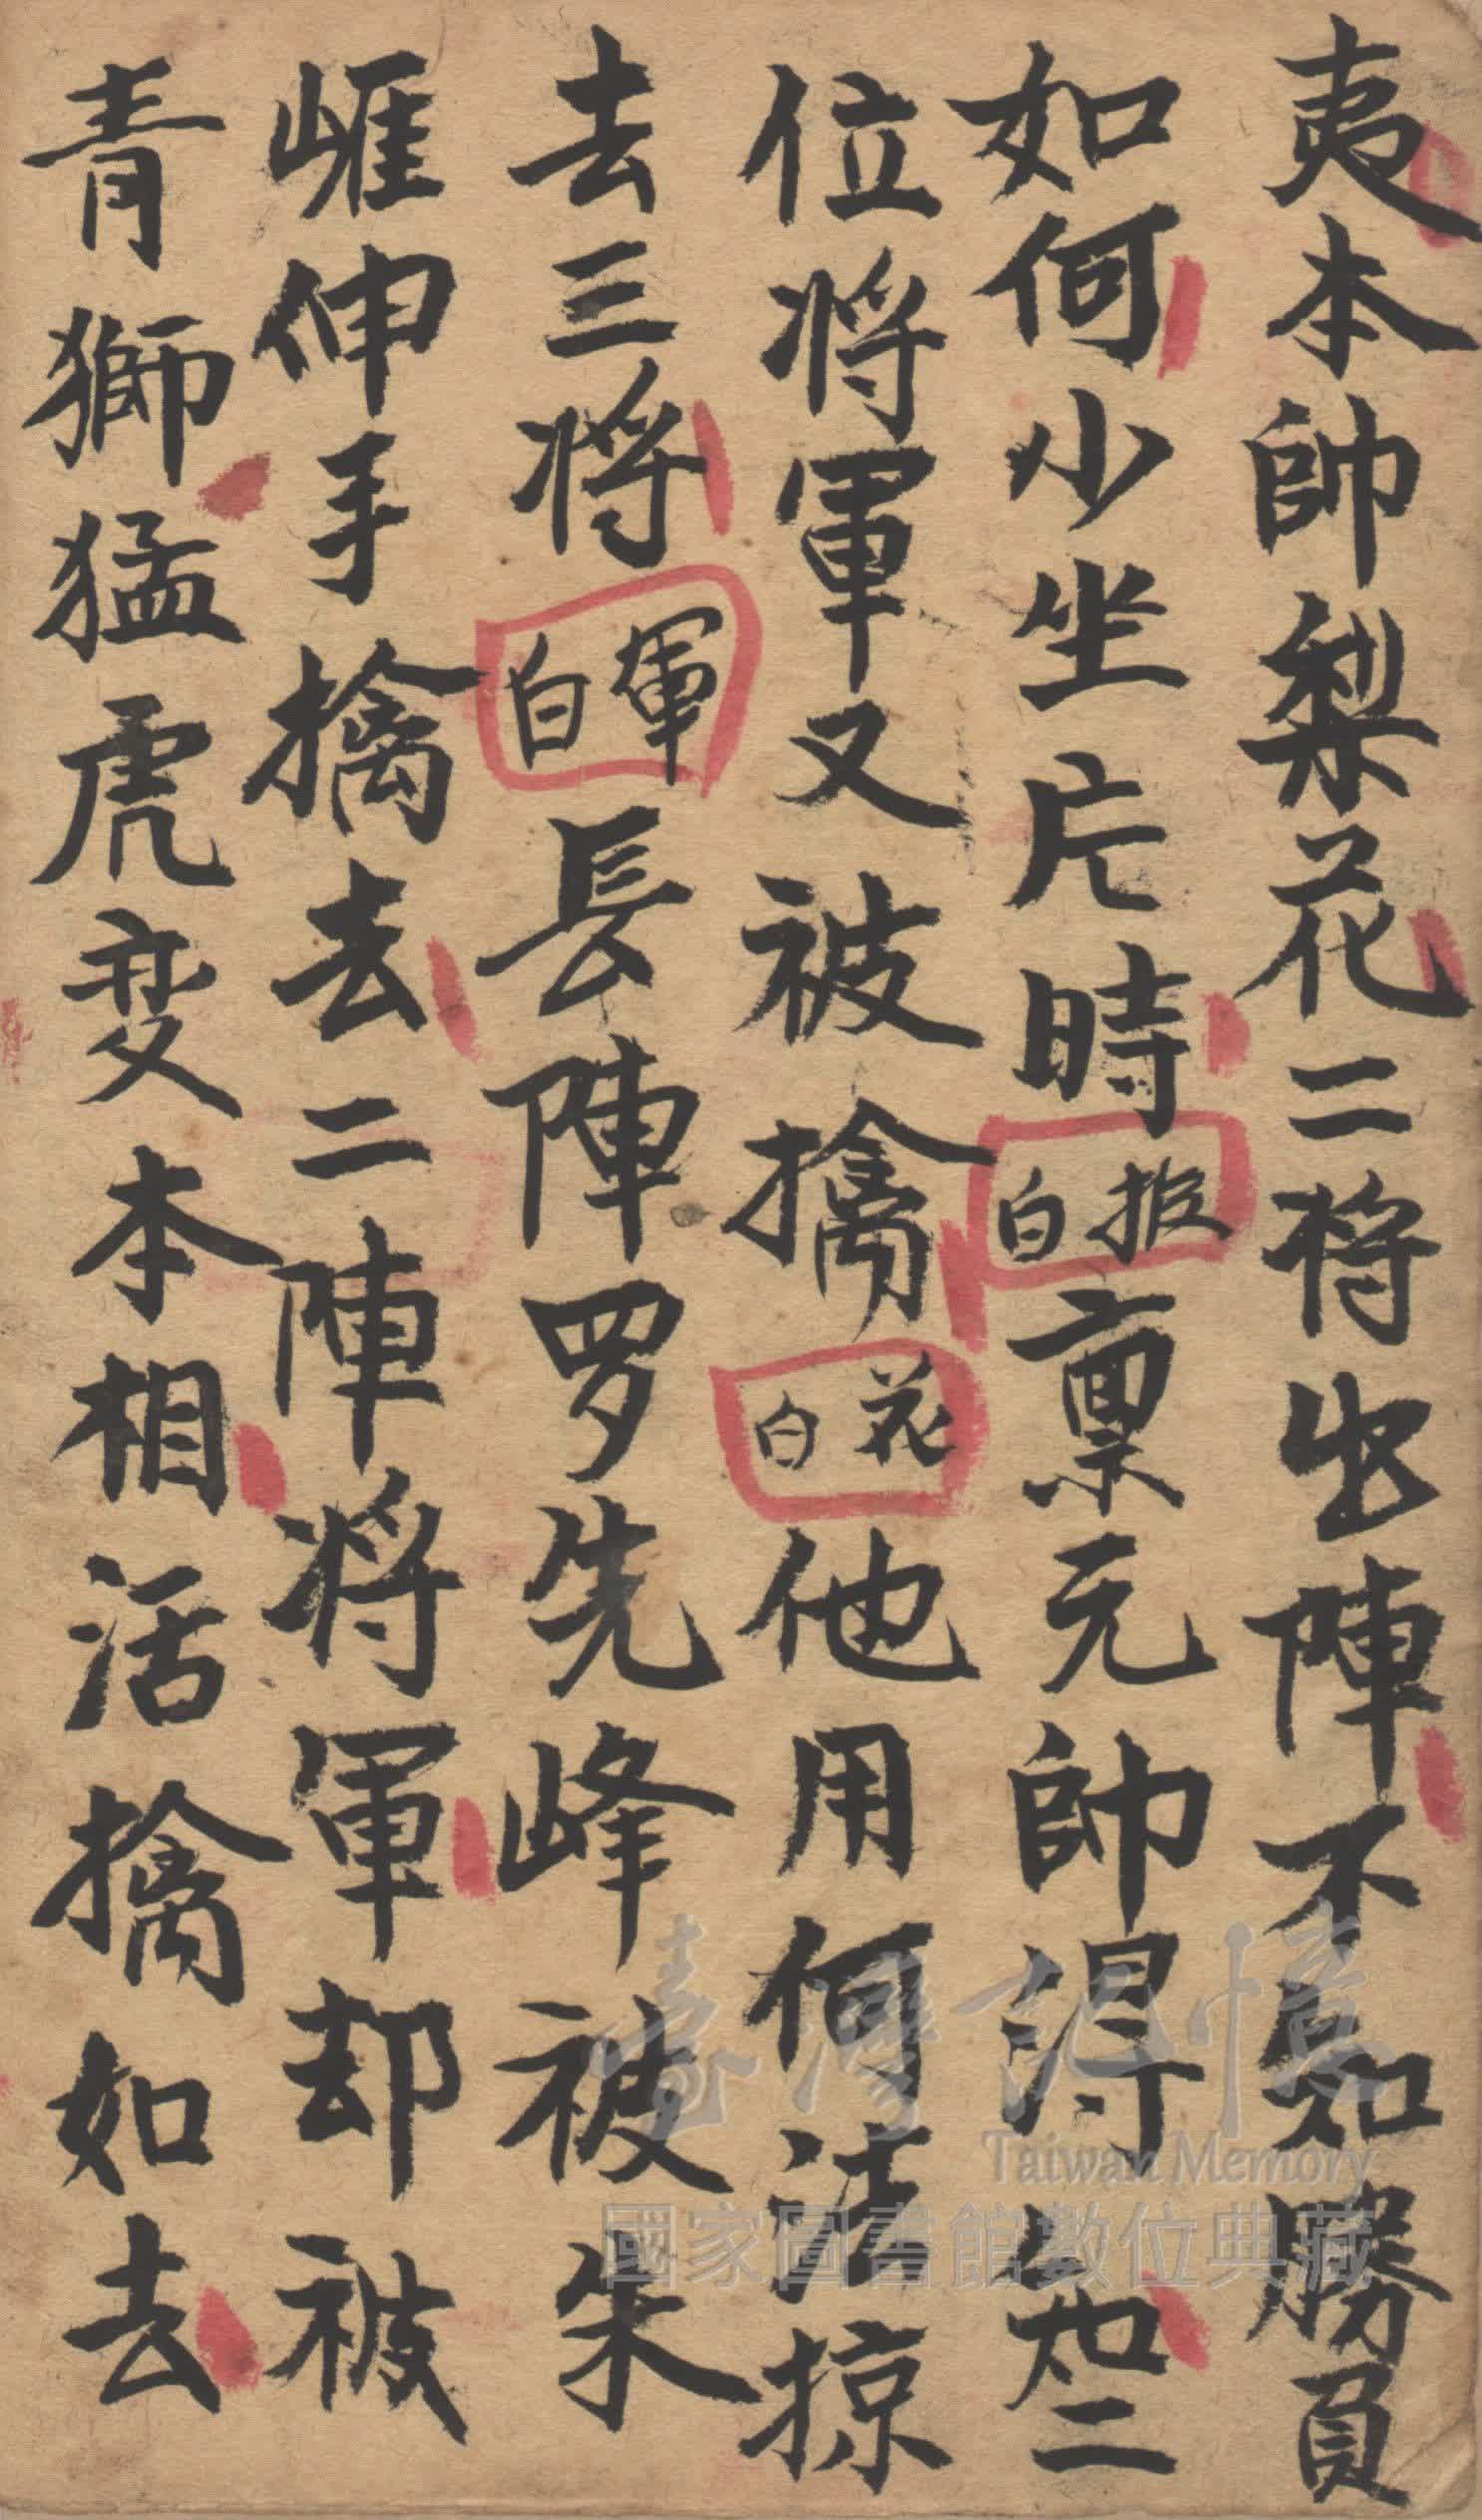 夷本帥梨花二将出陣不知勝負
如何少坐片時報白禀元帥得知二
位将軍又被擒花白他用何法掠
去三将軍白長陣罗先峰被朱
崕伸手擒去二陣将軍却被
青獅猛虎变本相活擒如去
臺灣記憶
Taiwan Memory
國家圖書館數位典藏